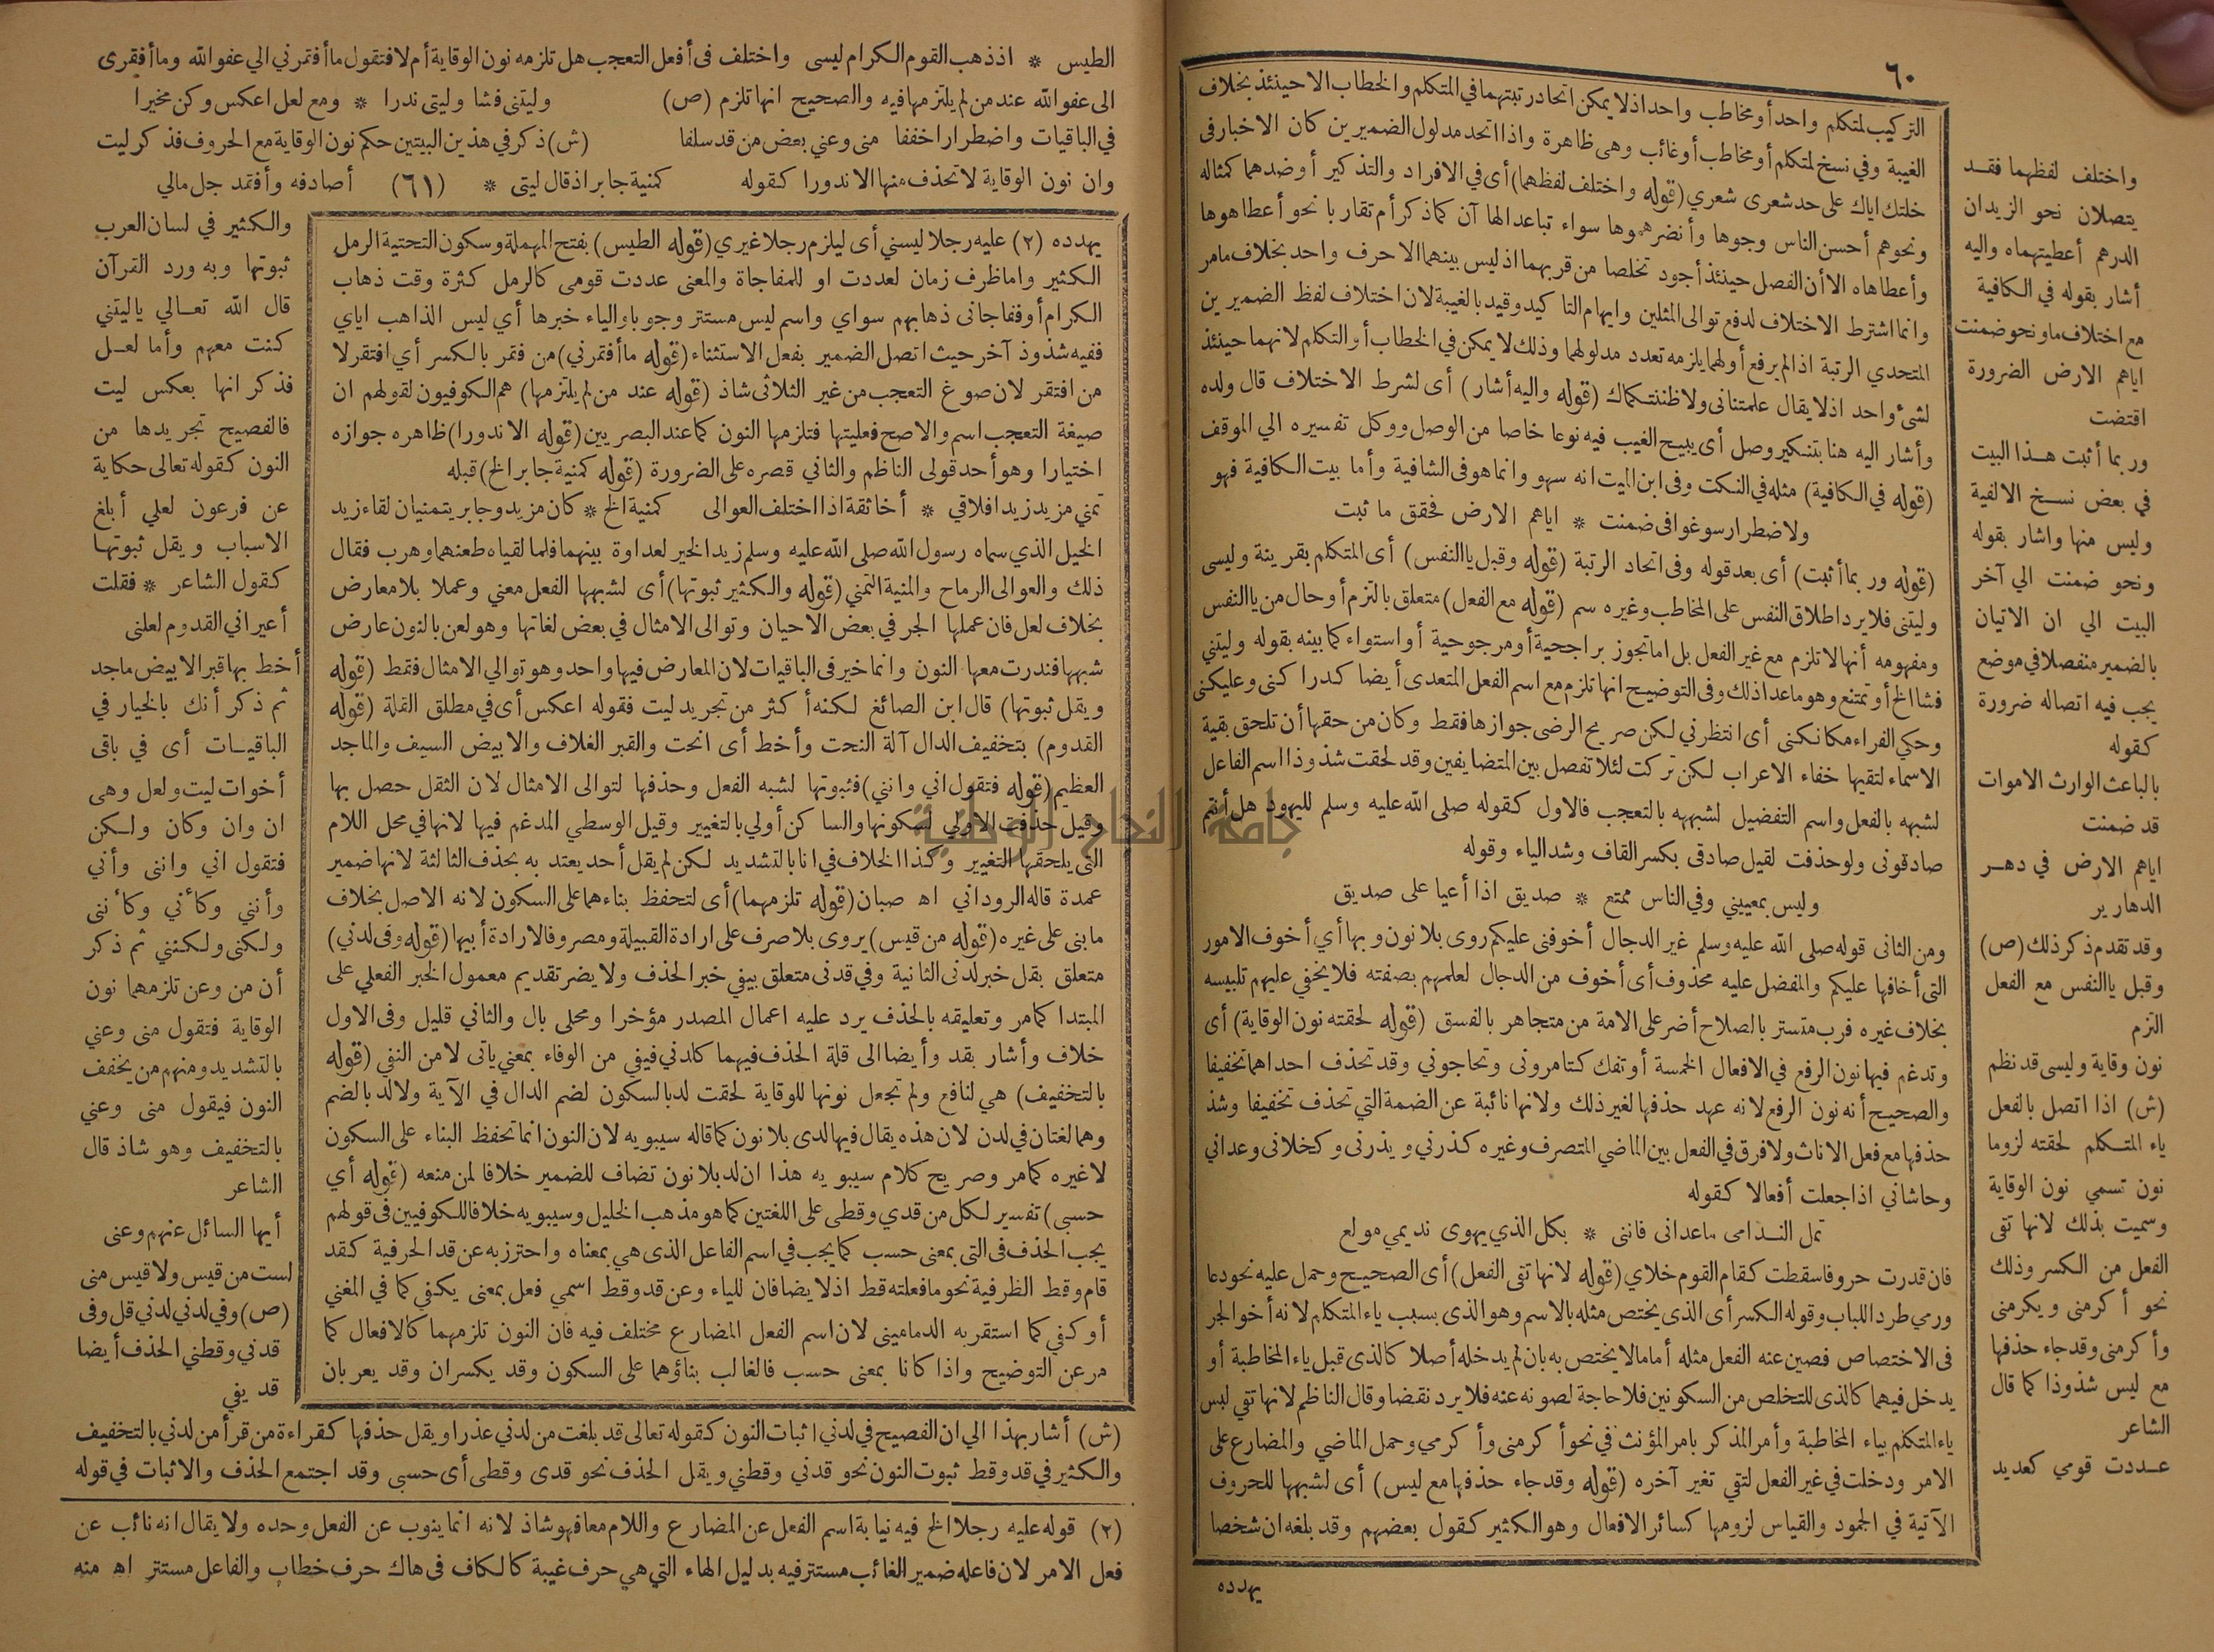 ٦٠
التركيب لمتكلم واحد أو مخاطب واحد اذلا يمكن اتحاد رتبتهما في المتكلم والخطاب الا حينئذ بخلاف
الغيبة وفي نسخ لمتكلم أو مخاطب أو غائب وهى ظاهرة واذا اتحد مدلول الضميرين كان الاخبار فى
خلتك اياك على حد شعرى شعري (قوله واختلف لفظهما) أى في الافراد والتذكير أو ضدهما كمثاله
ونحوهم أحسن الناس وجوها وأنضرهموها سواء تباعد الها آن كما ذكر أم تقاربا نحو أعطاهوها
وأعطاهاه الا أن الفصل حينئذ أجود تخلصا من قربهما اذ ليس بينهما الا حرف واحد بخلاف ما مر
وانما اشترط الاختلاف لدفع توالى المثلين وايهام التاكيد وقيد بالغيبة لان اختلاف لفظ الضميرين
المتحدي الرتبة اذا لم يرفع أولهما يلزمه تعدد مدلولهما وذلك لا يمكن في الخطاب أو التكلم لانهما حينئذ
لشئ واحد اذلا يقال علمتنانى ولا ظننتكماك (قوله واليه أشار) أى لشرط الاختلاف قال ولده
وأشار اليه هنا بتنكير وصل أى يبيح الغيب فيه نوعا خاصا من الوصل ووكل تفسيره الي الموقف
(قوله في الكافية) مثله في النكت وفى ابن الميت انه سهو وانما هو فى الشافية وأما بيت الكافية فهو
ولاضطرار سوغوا فى ضمنت * اياهم الارض فحقق ما ثبت
(قوله وربما أثبت) أى بعد قوله وفى اتحاد الرتبة (قوله وقبل يا النفس) أى المتكلم بقرينة وليسى
وليتنى فلا يرد اطلاق النفس على المخاطب وغيره سم (قوله مع الفعل) متعلق بالتزم أو حال من يا النفس
ومفهومه أنها لا تلزم مع غير الفعل بل اما تجوز براجحية أو مرجوحية أو استواء كما بينه بقوله وليتني
فشا الخ أو تمتنع وهو ما عدا ذلك وفى التوضيح انها تلزم مع اسم الفعل المتعدى أيضا كدراكنى وعليكنى
وحكي الفراء مكانكنى أى انتظرني لكن صريح الرضى جوازها فقط وكان من حقها أن تلحق بقية
الاسماء لتقيها خفاء الاعراب لكن تركت لئلا تفصل بين المتضايفين وقد لحقت شذوذا اسم الفاعل
لشبهه بالفعل واسم التفضيل لشبهه بالتعجب فالاول كقوله صلى الله عليه وسلم لليهود هل أنتم
صادقونى ولو حذفت لقيل صادقى بكسر القاف وشد الياء وقوله
وليس بمعييني وفي الناس ممتع * صديق اذا أعيا على صديق
ومن الثانى قوله صلى الله عليه وسلم غير الدجال أخوفنى عليكم روى بلا نون وبها أي أخوف الامور
التى أخافها عليكم والمفضل عليه محذوف أى أخوف من الدجال لعلمهم بصفته فلا يخفي عليهم تلبيسه
بخلاف غيره فرب متستر بالصلاح أضر على الامة من متجاهر بالفسق (قوله لحقته نون الوقاية) أى
وتدغم فيها نون الرفع في الافعال الخمسة أو تفك كتامرونى وتحاجوني وقد تحذف احداهما تخفيفا
والصحيح أنه نون الرفع لانه عهد حذفها لغير ذلك ولانها نائبة عن الضمة التي تحذف تخفيفا وشذ
حذفها مع فعل الاناث ولا فرق في الفعل بين الماضي المتصرف وغيره كذرني ويذرنى وكخلانى وعدانى
وحاشاني اذا جعلت أفعالا كقوله
تمل الندامى ماعدانى فاننى * بكل الذي يهوى نديمي مولع
فان قدرت حروفا سقطت كقام القوم خلاي (قوله لانها تقى الفعل) أى الصحيح وحمل عليه نحو دعا
ورمي طرد اللباب وقوله الكسر أى الذي يختص مثله بالاسم وهو الذى بسبب ياء المتكلم لانه أخو الجر
فى الاختصاص فصين عنه الفعل مثله أما مالا يختص به بان لم يدخله أصلا كالذى قبل ياء المخاطبة أو
يدخل فيهما كالذى للتخلص من السكونين فلا حاجة لصونه عنه فلا يرد نقضا وقال الناظم لانها تقي لبس
ياء المتكلم بياء المخاطبة وأمر المذكر بامر المؤنث في نحو أكرمنى وأكرمي وحمل الماضي والمضارع على
الامر ودخلت في غير الفعل لتقي تغير آخره (قوله وقد جاء حذفها مع ليس) أى لشبهها للحروف
الآتية في الجمود والقياس لزومها كسائر الافعال وهو الكثير كقول بعضهم وقد بلغه ان شخصا
يهدده
واختلف لفظهما فقد
يتصلان نحو الزيدان
الدرهم أعطيتهماه واليه
أشار بقوله في الكافية
مع اختلاف ما ونحو ضمنت
اياهم الارض الضرورة
اقتضت
وربما أثبت هذا البيت
في بعض نسخ الالفية
وليس منها واشار بقوله
ونحو ضمنت الي آخر
البيت الي ان الاتيان
بالضمير منفصلا في موضع
يجب فيه اتصاله ضرورة
كقوله
بالباعث الوارث الاموات
قد ضمنت
اياهم الارض في دهر
الدهارير
وقد تقدم ذكر ذلك (ص)
وقبل يا النفس مع الفعل
التزم
نون وقاية وليسى قد نظم
(ش) اذا اتصل بالفعل
ياء المتكلم لحقته لزوما
نون تسمي نون الوقاية
وسميت بذلك لانها تقى
الفعل من الكسر وذلك
نحو أكرمنى ويكرمنى
وأكرمنى وقد جاء حذفها
مع ليس شذوذا كما قال
الشاعر
عددت قومي كعديد
الطيس * اذ ذهب القوم الكرام ليسى واختلف فى أفعل التعجب هل تلزمه نون الوقاية أم لا فتقول ما أفقرني الي عفو الله وما أفقرى
الى عفو الله عند من لم يلتزمها فيه والصحيح انها تلزم (ص) وليتنى فشا وليتى ندرا * ومع لعل اعكس وكن مخيرا
في الباقيات واضطرارا خففا منى وعني بعض من قد سلفا (ش) ذكر في هذين البيتين حكم نون الوقاية مع الحروف فذكر ليت
وان نون الوقاية لا تحذف منها الا ندورا كقوله كمنية جابر اذ قال ليتى * (٦١) أصادفه وأفقد جل مالي
والكثير في لسان العرب
ثبوتها وبه ورد القرآن
قال الله تعالي ياليتني
كنت معهم وأما لعل
فذكر انها بعكس ليت
فالفصيح تجريدها من
النون كقوله تعالى حكاية
عن فرعون لعلي أبلغ
الاسباب ويقل ثبوتها
كقول الشاعر * فقلت
أعيراني القدوم لعلنى
أخط بها قبرا لابيض ماجد
ثم ذكر أنك بالخيار في
الباقيات أى في باقى
أخوات ليت ولعل وهى
ان وان وكان ولكن
فتقول اني واننى وأني
وأنني وكأني وكأننى
ولكنى ولكننى ثم ذكر
أن من وعن تلزمهما نون
الوقاية فتقول منى وعني
بالتشديد ومنهم من يخفف
النون فيقول منى وعني
بالتخفيف وهو شاذ قال
الشاعر
أيها السائل عنهم وعنى
لست من قيس ولا قيس منى
(ص) وفي لدني لدني قل وفى
قدني وقطني الحذف أيضا
قد يفي
يهدده (٢) عليه رجلا ليسني أى ليلزم رجلا غيري (قوله الطيس) بفتح المهملة وسكون التحتية الرمل
الكثير واما ظرف زمان لعددت او للمفاجاة والمعنى عددت قومى كالرمل كثرة وقت ذهاب
الكرام أو ففاجانى ذهابهم سواي واسم ليس مستتر وجوبا والياء خبرها أي ليس الذاهب اياي
ففيه شذوذ آخر حيث اتصل الضمير بفعل الاستثناء (قوله ما أفقرني) من فقر بالكسر أي افتقر لا
من افتقر لان صوغ التعجب من غير الثلاثى شاذ (قوله عند من لم يلتزمها) هم الكوفيون لقولهم ان
صيغة التعجب اسم والاصح فعليتها فتلزمها النون كما عند البصريين (قوله الا ندورا) ظاهره جوازه
اختيارا وهو أحد قولى الناظم والثاني قصره على الضرورة (قوله كمنية جابر الخ) قبله
تمني مزيد زيدا فلاقي * أخا ثقة اذا اختلف العوالى كمنية الخ * كان مزيد وجابر يتمنيان لقاء زيد
الخيل الذي سماه رسول الله صلى الله عليه وسلم زيد الخير لعداوة بينهما فلما لقياه طعنهما وهرب فقال
ذلك والعوالى الرماح والمنية التمني (قوله والكثير ثبوتها) أى لشبهها الفعل معني وعملا بلا معارض
بخلاف لعل فان عملها الجر في بعض الاحيان وتوالى الامثال في بعض لغاتها وهو لعن بالنون عارض
شبهها فندرت معها النون وانما خير فى الباقيات لان المعارض فيها واحد وهو توالي الامثال فقط (قوله
ويقل ثبوتها) قال ابن الصائغ لكنه أكثر من تجريد ليت فقوله اعكس أى في مطلق القلة (قوله
القدوم) بتخفيف الدال آلة النحت وأخط أى انحت والقبر الغلاف والابيض السيف والماجد
العظيم (قوله فتقول اني وانني) فثبوتها لشبه الفعل وحذفها لتوالى الامثال لان الثقل حصل بها
وقيل حذفت الاولي لسكونها والساكن أولي بالتغيير وقيل الوسطي المدغم فيها لانها في محل اللام
التى يلحقها التغيير وكذا الخلاف في انا بالتشديد لكن لم يقل أحد يعتد به بحذف الثالثة لانها ضمير
عمدة قاله الروداني اه صبان (قوله تلزمهما) أى لتحفظ بناءهما على السكون لانه الاصل بخلاف
ما بنى على غيره (قوله من قيس) يروى بلا صرف على ارادة القبيلة ومصروفا لارادة أبيها (قوله وفى لدني)
متعلق بقل خبر لدنى الثانية وفي قدنى متعلق بيفي خبر الحذف ولا يضر تقديم معمول الخبر الفعلي على
المبتدا كما مر وتعليقه بالحذف يرد عليه اعمال المصدر مؤخرا ومحلى بال والثاني قليل وفى الاول
خلاف وأشار بقد وأيضا الى قلة الحذف فيهما كلدني فيفي من الوفاء بمعني ياتى لا من النفي (قوله
بالتخفيف) هي لنافع ولم تجعل نونها للوقاية لحقت لد بالسكون لضم الدال في الآية ولا لد بالضم
وهما لغتان في لدن لان هذه يقال فيها لدى بلا نون كما قاله سيبويه لان النون انما تحفظ البناء على السكون
لا غيره كما مر وصريح كلام سيبويه هذا ان لد بلا نون تضاف للضمير خلافا لمن منعه (قوله أي
حسبى) تفسير لكل من قدي وقطى على اللغتين كما هو مذهب الخليل وسيبويه خلافا للكوفيين فى قولهم
يجب الحذف فى التى بمعنى حسب كما يجب في اسم الفاعل الذى هي بمعناه واحترز به عن قد الحرفية كقد
قام وقط الظرفية نحو ما فعلته قط اذلا يضافان للياء وعن قد وقط اسمي فعل بمعنى يكفي كما في المغني
أو كفي كما استقر به الدمامينى لان اسم الفعل المضارع مختلف فيه فان النون تلزمهما كالافعال كما
مر عن التوضيح واذا كانا بمعنى حسب فالغالب بناؤهما على السكون وقد يكسران وقد يعربان
(ش) أشار بهذا الي ان الفصيح في لدني اثبات النون كقوله تعالى قد بلغت من لدني عذرا ويقل حذفها كقراءة من قرأ من لدني بالتخفيف
والكثير في قد وقط ثبوت النون نحو قدني وقطني ويقل الحذف نحو قدى وقطى أى حسبى وقد اجتمع الحذف والاثبات في قوله
(٢) قوله عليه رجلا الخ فيه نيابة اسم الفعل عن المضارع واللام معا فهو شاذ لانه انما ينوب عن الفعل وحده ولا يقال انه نائب عن
فعل الامر لان فاعله ضمير الغائب مستتر فيه بدليل الهاء التي هي حرف غيبة كالكاف فى هاك حرف خطاب والفاعل مستتر اه منه
جامعة النجاح الوطنية